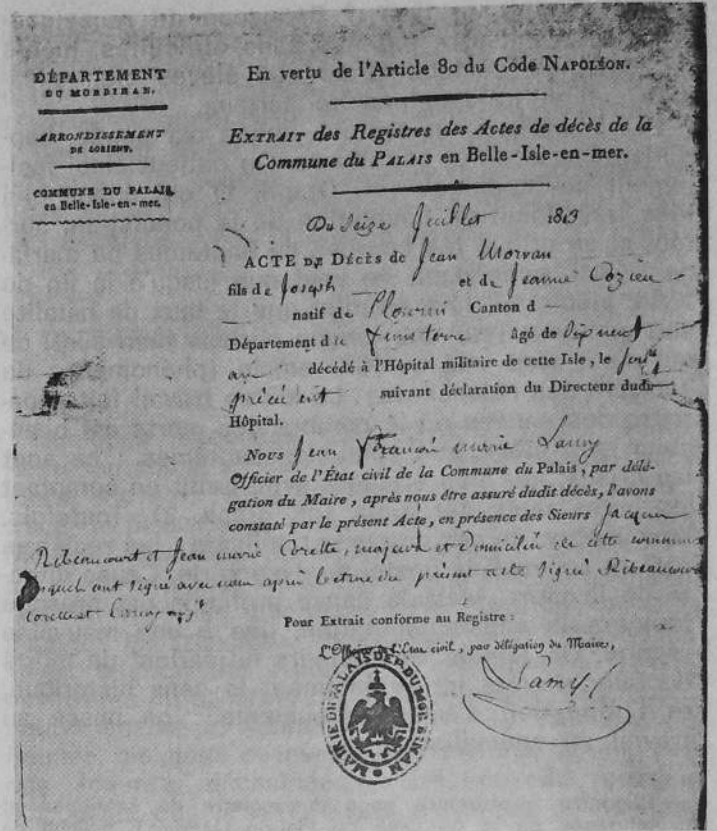 DÉPARTEMENT
DU MORBIHAN.
ARRONDISSEMENT
DE LORIENT.
COMMUNE DU PALAIS
en Belle-Isle-en-mer.
En vertu de l'Article 80 du Code NAPOLÉON.
EXTRAIT des Registres des Actes de décès de la
Commune du PALAIS en Belle-Isle-en-mer.
Du Seize Juillet 1813
ACTE DE Décès de Jean Morvan
fils de Joseph et de Jeanne Cozien
natif de Canton d
Département du Finisterre âgé de dix neuf
ans décédé à l'Hôpital militaire de cette Isle, le jour
précédent suivant déclaration du Directeur dudit
Hôpital.
Nous Jean François marie Lamy
Officier de l'État civil de la Commune du Palais, par délé-
gation du Maire, après nous être assuré dudit décès, l'avons
constaté par le présent Acte, en présence des Sieurs Jacques
Ribeaucourt et Jean marie Corette, majeurs et domiciliés de cette commune
lesquels ont signé avec nous après lecture du présent acte signé Ribeaucourt
Corette et Lamy
Pour Extrait conforme au Registre :
L'Officier de l'État civil, par délégation du Maire,
Lamy
MAIRIE DU PALAIS DEP. DU MORBIHAN